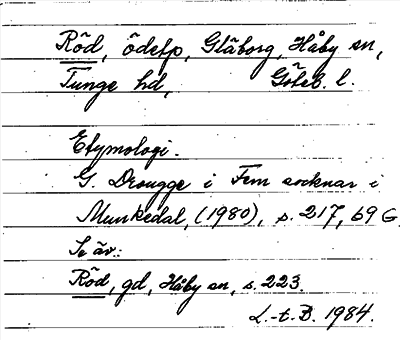 Röd, ödefp, Glåborg, Håby sn,
Tunge hd, Göteb. l.
Etymologi.
G. Drougge i Fem socknar i
Munkedal, (1980), s. 217, 69 G
Se äv.:
Röd, gd, Håby sn, s. 223.
L.-t. B. 1984.